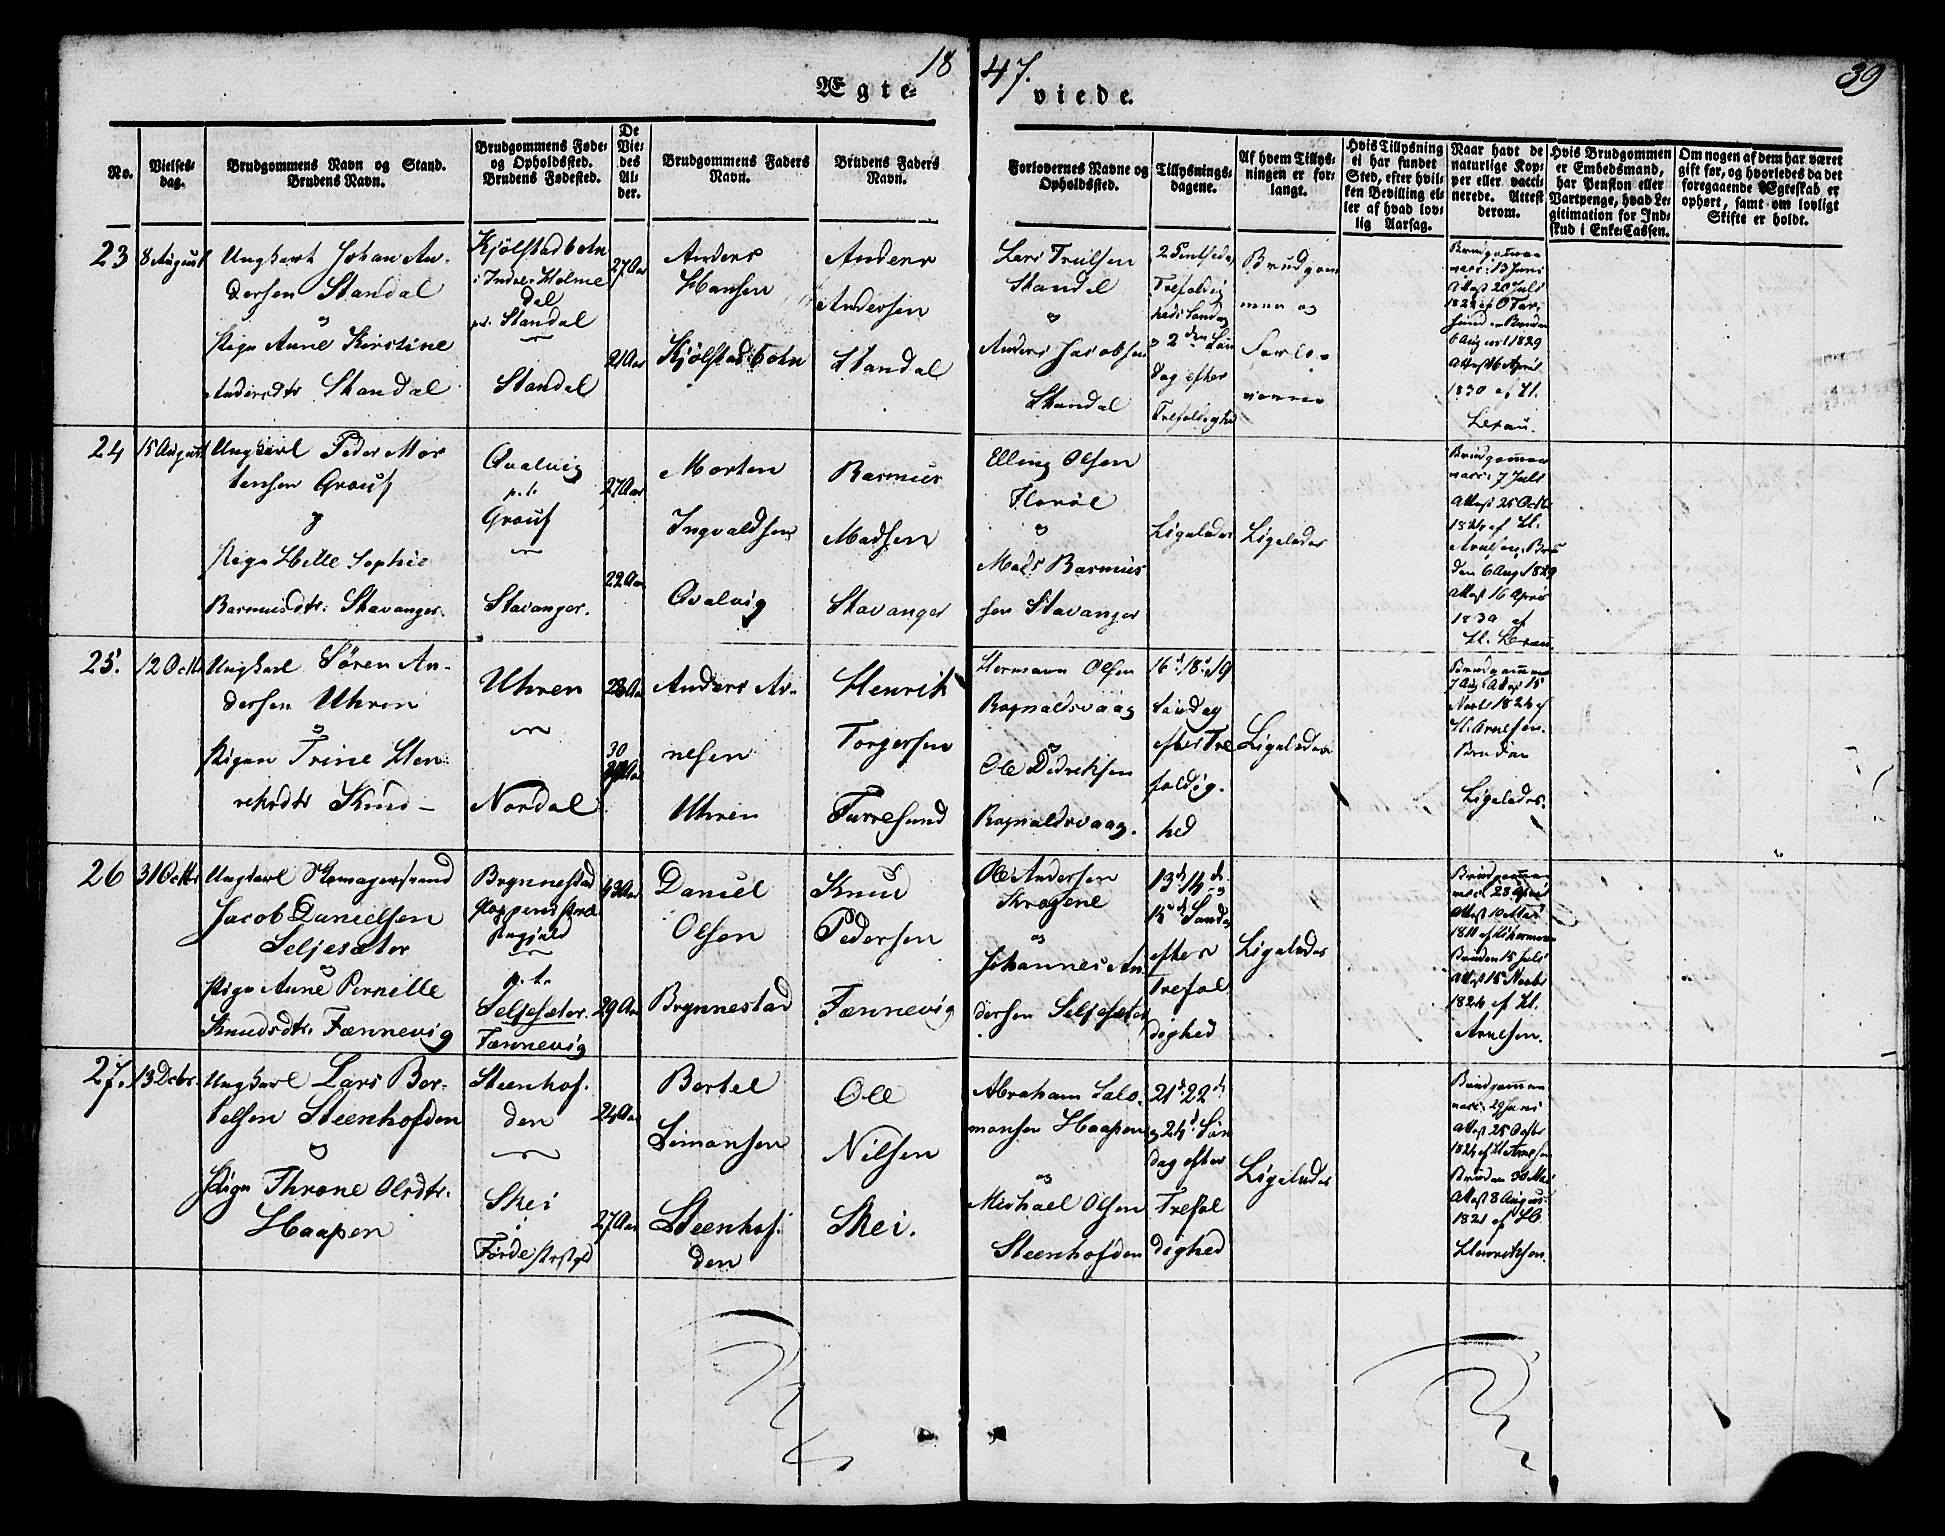 1847.
39
Ægteviede.
No.
Vielsesdag.
Brudgommens Navn og Stand.
Brudens Navn.
Brudgommens Føde- og Opholdssted.
Brudens Fødested.
De Viedes Alder.
Brudgommens Faders Navn.
Brudens Faders Navn.
Forlovernes Navne og Opholdssted.
Tillysningsdagene.
Af hvem Tillysningen er forlangt.
Hvis Tillysning ei har fundet Sted, efter hvilken Bevilling eller af hvad lovlig Aarsag.
Naar havt de naturlige Kopper eller vaccinerede. Attest derom.
Hvis Brudgommen er Embedsmand, har Pension eller Vartpenge, hvad Legitimation for Indskud i Enke-Cassen.
Om nogen af dem har været gift før, og hvorledes da det foregaaende Ægteskab er ophørt, samt om lovligt Skifte er holdt.
23
8 August
Ungkarl Johan An-
dersen Standal
og
Pige Anne Kirstine
Andersdtr Standal
Kjølstadbotn
i Indre Holme
dal
p.t. Standal
Standal
27 Aar
21 Aar
Anders
Hansen
Kjølstadbotn
Anders
Andersen
Standal
Lars Truelsen
Standal
og
Anders Jacobsen
Standal
Trefoldig
heds Søndag
og 2den Søn
dag efter
Trefoldighed
Brudgom
men og
Forlo-
verne
Brudgommen
vacc: 13 Juni
Attest 20 Juli
Bruden
6 August 1829
Attest 16 April
1830 af H.
24
15 August
Ungkarl Peder Mor
tensen Grouf
og
Pige Helle Sophie
Rasmusdtr: Stavanger.
Qvalvig
p.t.
Grouf
Stavanger.
27 Aar
22 Aar
Morten
Ingvaldsen
Qvalvig
Rasmus
Madsen
Stavanger
Elling Olsen
Florøl
og
Mads Rasmus
sen Stavanger
Ligeledes
Ligeledes
Brudgommen
vacc: 7 Juli
Attest 25 Octbr
1824 af H.
Arnesen, Bru
den 6 Aug 1829
Attest 16 April
1830 af
25.
12 Octbr
Ungkarl Søren An-
dersen Uhren
og
Pigen Trine Hen-
riksdtr Knud-
Uhren
Nordal
28 Aar
30
Anders Ar-
nesen
Uhren
Henrik
Torgersen
Furresund
Hermann Olsen
Rognaldsvaag
og
Ole Didriksen
Rognaldsvaag.
16d 18d 19
Søndag
efter Tre
foldig-
hed
Ligeledes
Brudgommen
7 Aug Attest 15
Novbr 1824 af
H. Arnesen.
Bruden
Ligeledes.
26
31 Octbr
Ungkarl
Jacob Danielsen
Seljesæter
og
Pige Anne Pernille
Knudsdtr. Fænnevig
Brynnestad
p.t.
Seljesæter.
Fænnevig
43 Aar
29 Aar
Daniel
Olsen
Brynnestad
Knud
Pedersen
Fænnevig
Ole Andersen
Krogene
og
Johannes An
dersen Seljesæter
13d 14d og
15d Søndag
efter
Trefol
dighed
Ligeledes
Brudgommen
vacc: 28 April
Attest 10 Mai
Bruden 15 Juli
Attest 15 Novbr
1824 af H.
Arnesen.
27.
13 Decbr.
Ungkarl Lars Ber-
telsen Steenhofden
og
Pige Throne Olsdtr.
Haapen
Steenhof-
den
Skei
i
Førde Prstgld
24 Aar
27 Aar
Bertel
Simonsen
Steenhof-
den
Ole
Nilsen
Skei.
Abraham Salo-
monsen Haapen
og
Michael Olsen
Steenhofden
21d 22d
og 24d Søn
dag efter
Trefol
dighed
Ligeledes
Brudgommen
vacc: 29 Juni
Attest 25 Octbr
1824 af H Arnesen
Bruden 30 Mai
Attest 8 August
1821 af
Henriksen.